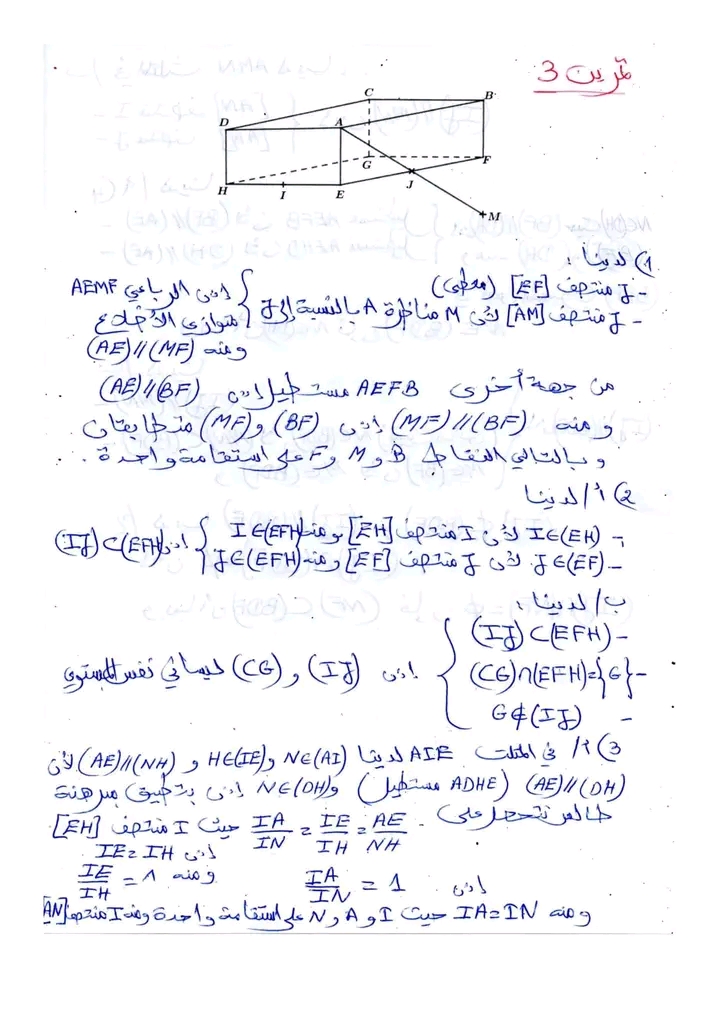 تمرين 3
C
B
D
A
G
F
H
I
E
J
M
1) لدينا :
- J منتصف [EF] (معطى)
- J منتصف [AM] لأن M مناظرة A بالنسبة إلى J } إذن الرباعي AEMF متوازي الأضلاع
ومنه (AE)//(MF)
من جهة أخرى AEFB مستطيل إذن (AE)//(BF)
ومنه (MF)//(BF) إذن (BF) و (MF) متطابقان
وبالتالي النقاط B و M و F على استقامة واحدة .
2) أ/ لدينا
- I∈(EH) لأن I منتصف [EH] ومنه I∈(EFH)
- J∈(EF) لأن J منتصف [EF] ومنه J∈(EFH) } إذن (IJ)⊂(EFH)
ب/ لدينا :
- (IJ)⊂(EFH)
- (CG)∩(EFH)={G} } إذن (IJ) و (CG) ليسا في نفس المستوي
- G∉(IJ)
3) أ/ في المثلث AIE لدينا N∈(AI) و H∈(IE) و (AE)//(NH) لأن
(AE)//(DH) (ADHE مستطيل) و N∈(DH) إذن بتطبيق مبرهنة
طالس نتحصل على IA/IN = IE/IH = AE/NH حيث I منتصف [EH]
إذن IE=IH
ومنه IE/IH = 1 إذن IA/IN = 1
ومنه IA=IN حيث I و A و N على استقامة واحدة ومنه I منتصف [AN]